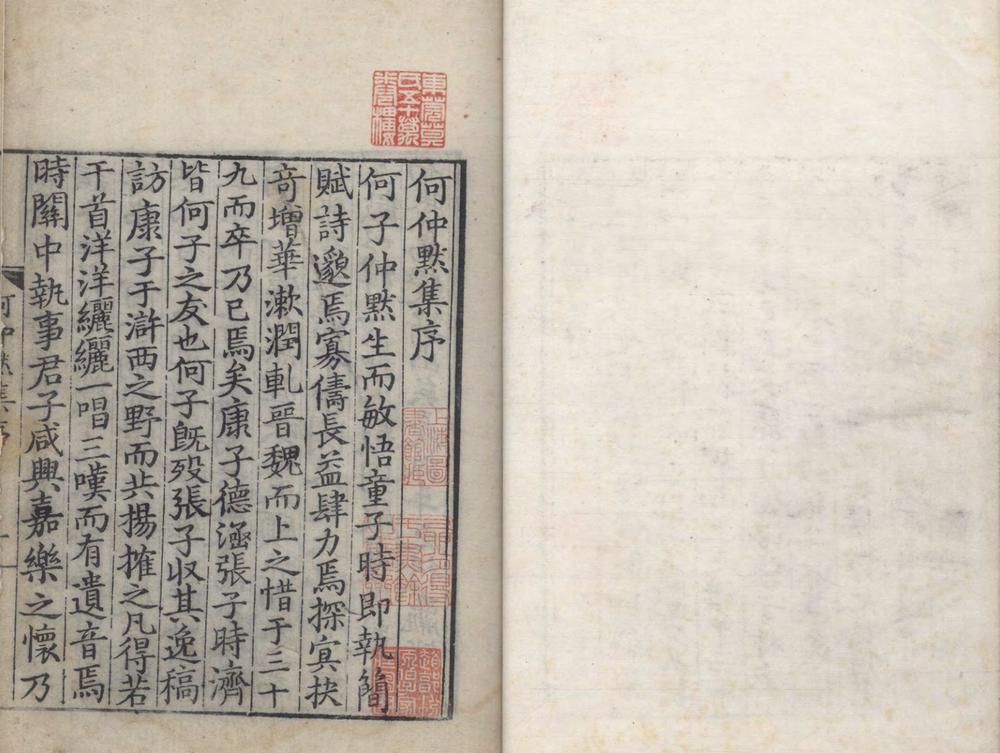 何仲默集序
何子仲默生而敏悟童子時即執簡
賦詩邈焉寡儔長益肆力焉探㝠抉
竒增華漱潤軋晉魏而上之惜于三十
九而卒乃已焉矣康子德涵張子時濟
皆何子之友也何子旣歿張子收其逸稿
訪康子于滸西之野而共揚搉之凡得若
干首洋洋纚纚一唱三嘆而有遺音焉
時關中執事君子咸興嘉樂之懷乃
何仲默集序
東莞莫
氏五十萬
卷樓
上海圖
書館藏